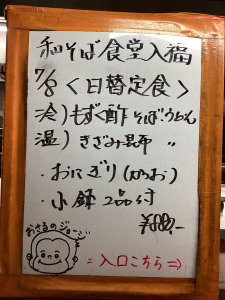 和そば食堂入福
7/8 <日替定食>
冷) もずく酢そば・うどん
温) きざみ昆布 〃
・おにぎり(かつお)
・小鉢2品付
¥880,-
おさるのジョージ
=入口こちら⇒